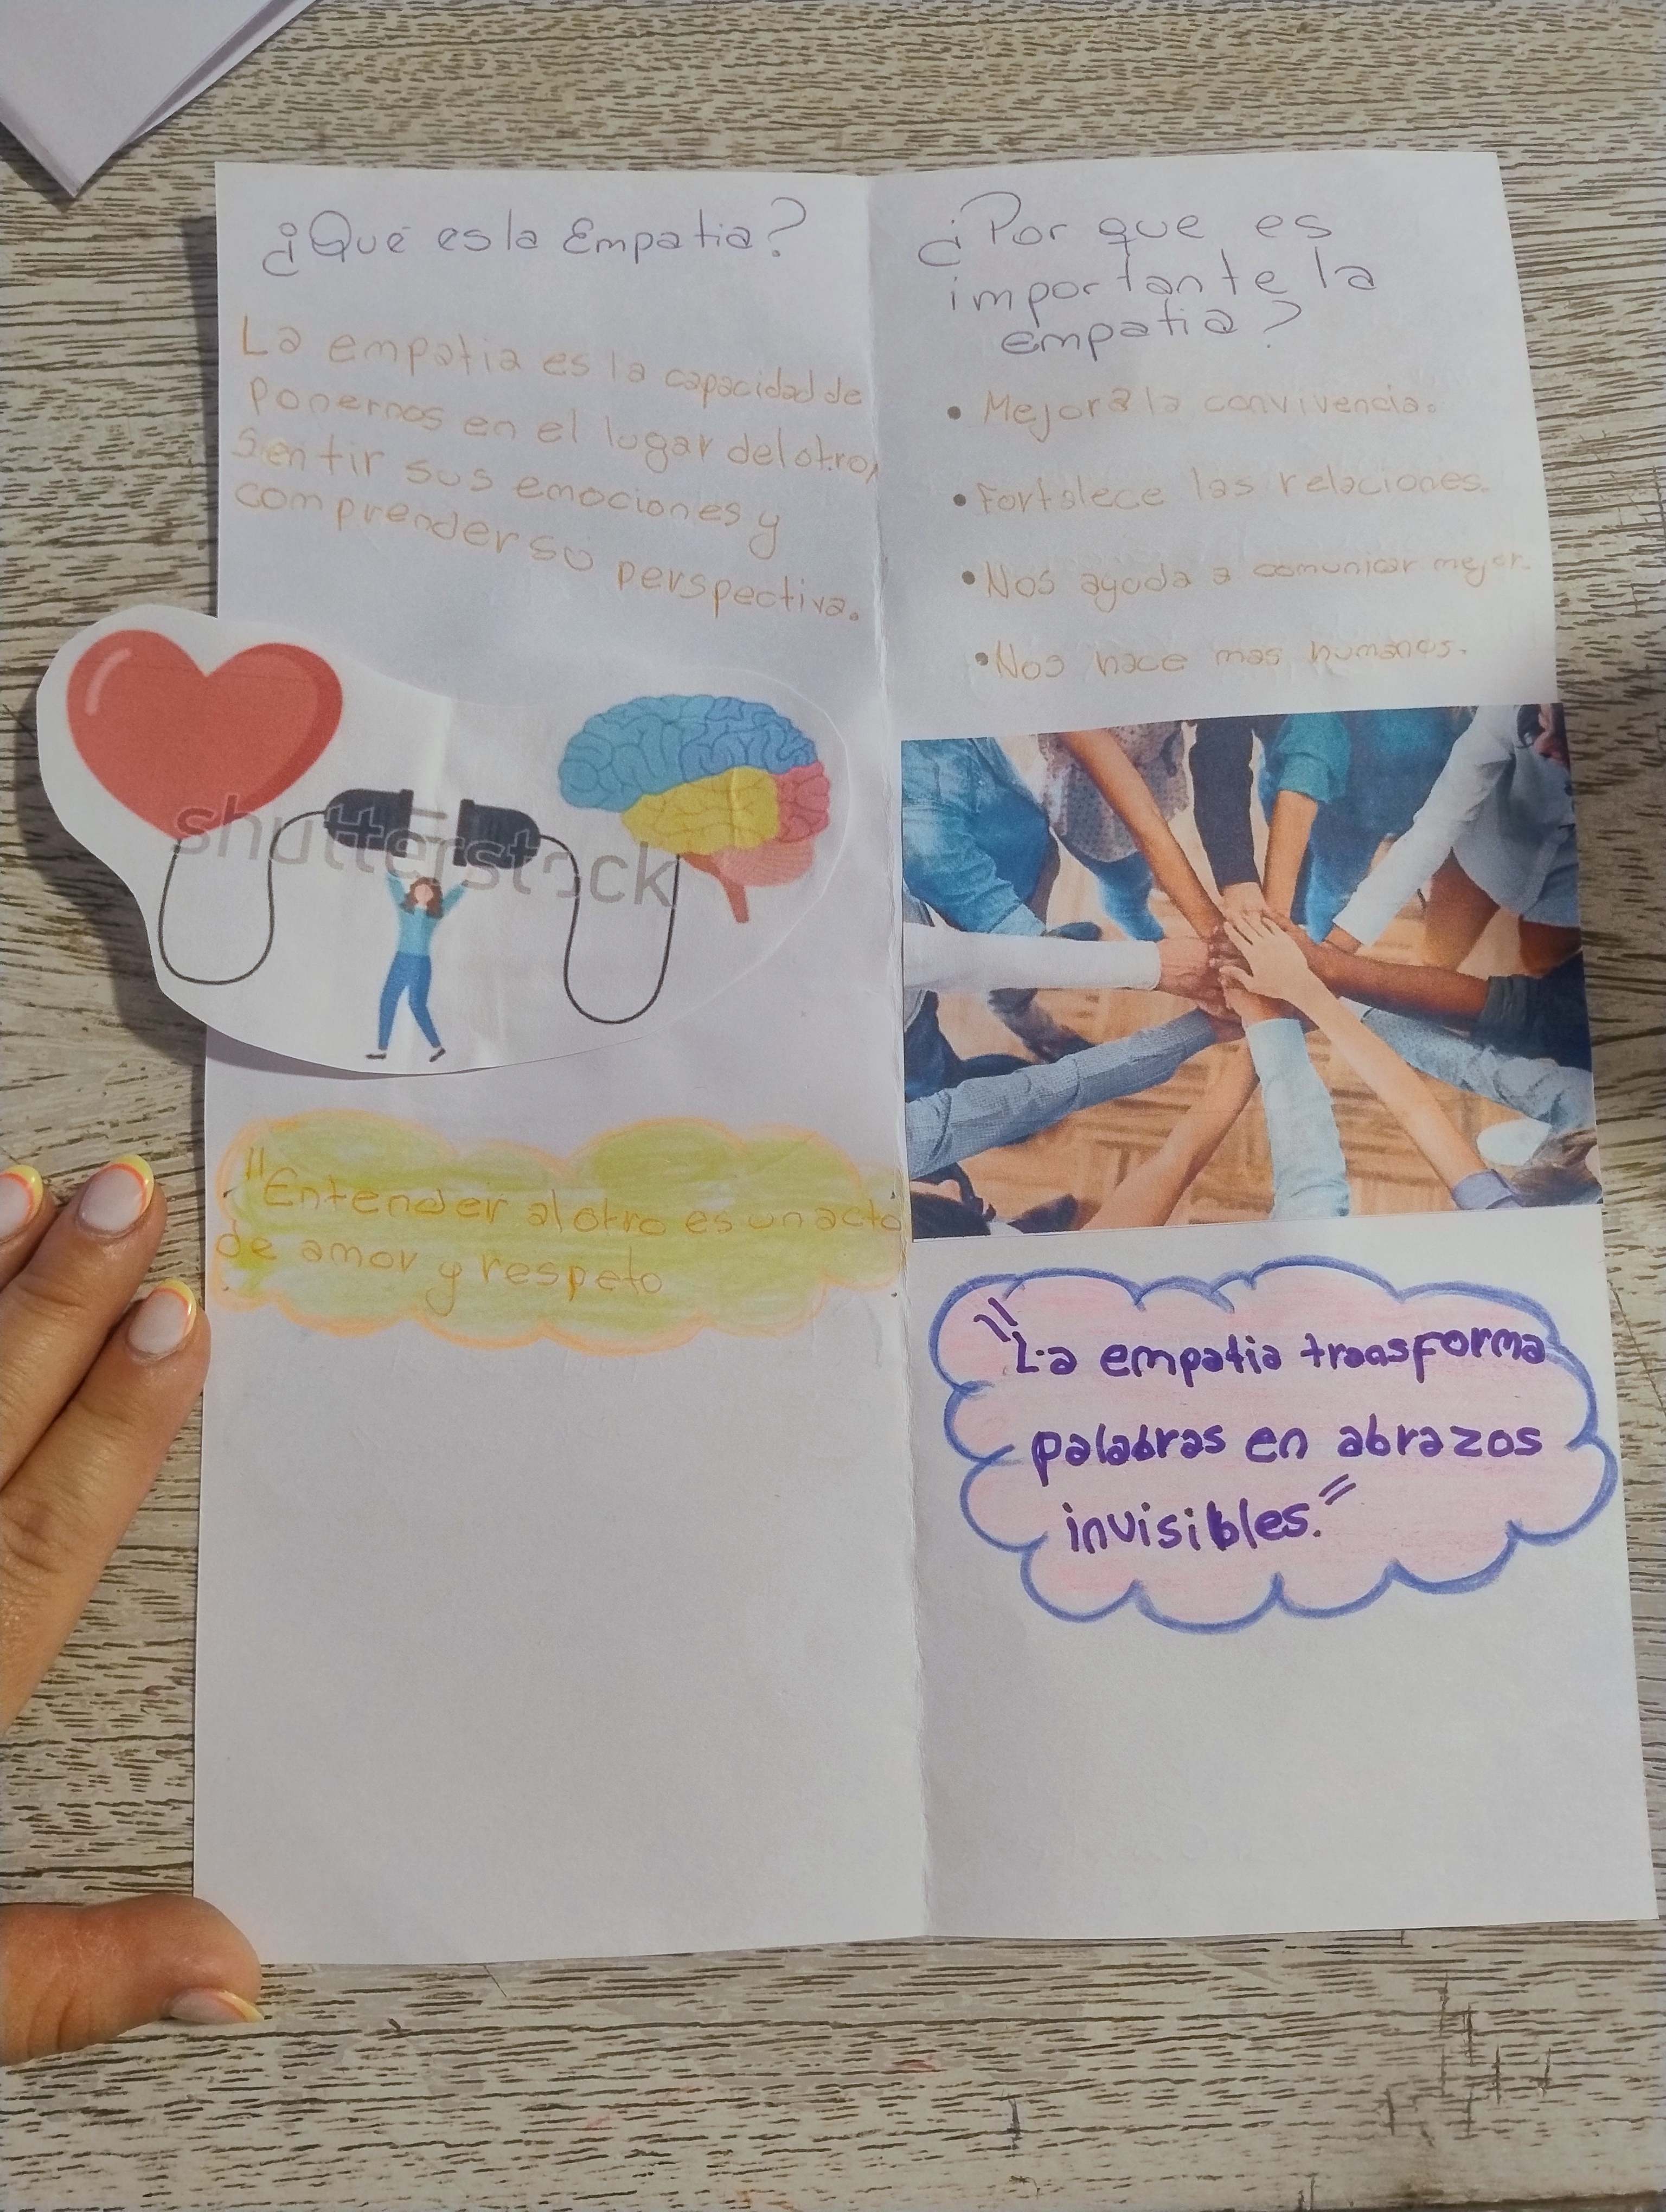 ¿Que es la Empatia?
La empatia es la capacidad de
Ponernos en el lugar del otro,
Sentir sus emociones y
comprender su perspectiva.
shutterstock
"Entender al otro es un acto
de amor y respeto
¿Por que es
importante la
empatia?
• Mejora la convivencia.
• Fortalece las relaciones.
• Nos ayuda a comunicar mejor.
• Nos hace mas humanos.
"La empatia transforma
palabras en abrazos
invisibles."